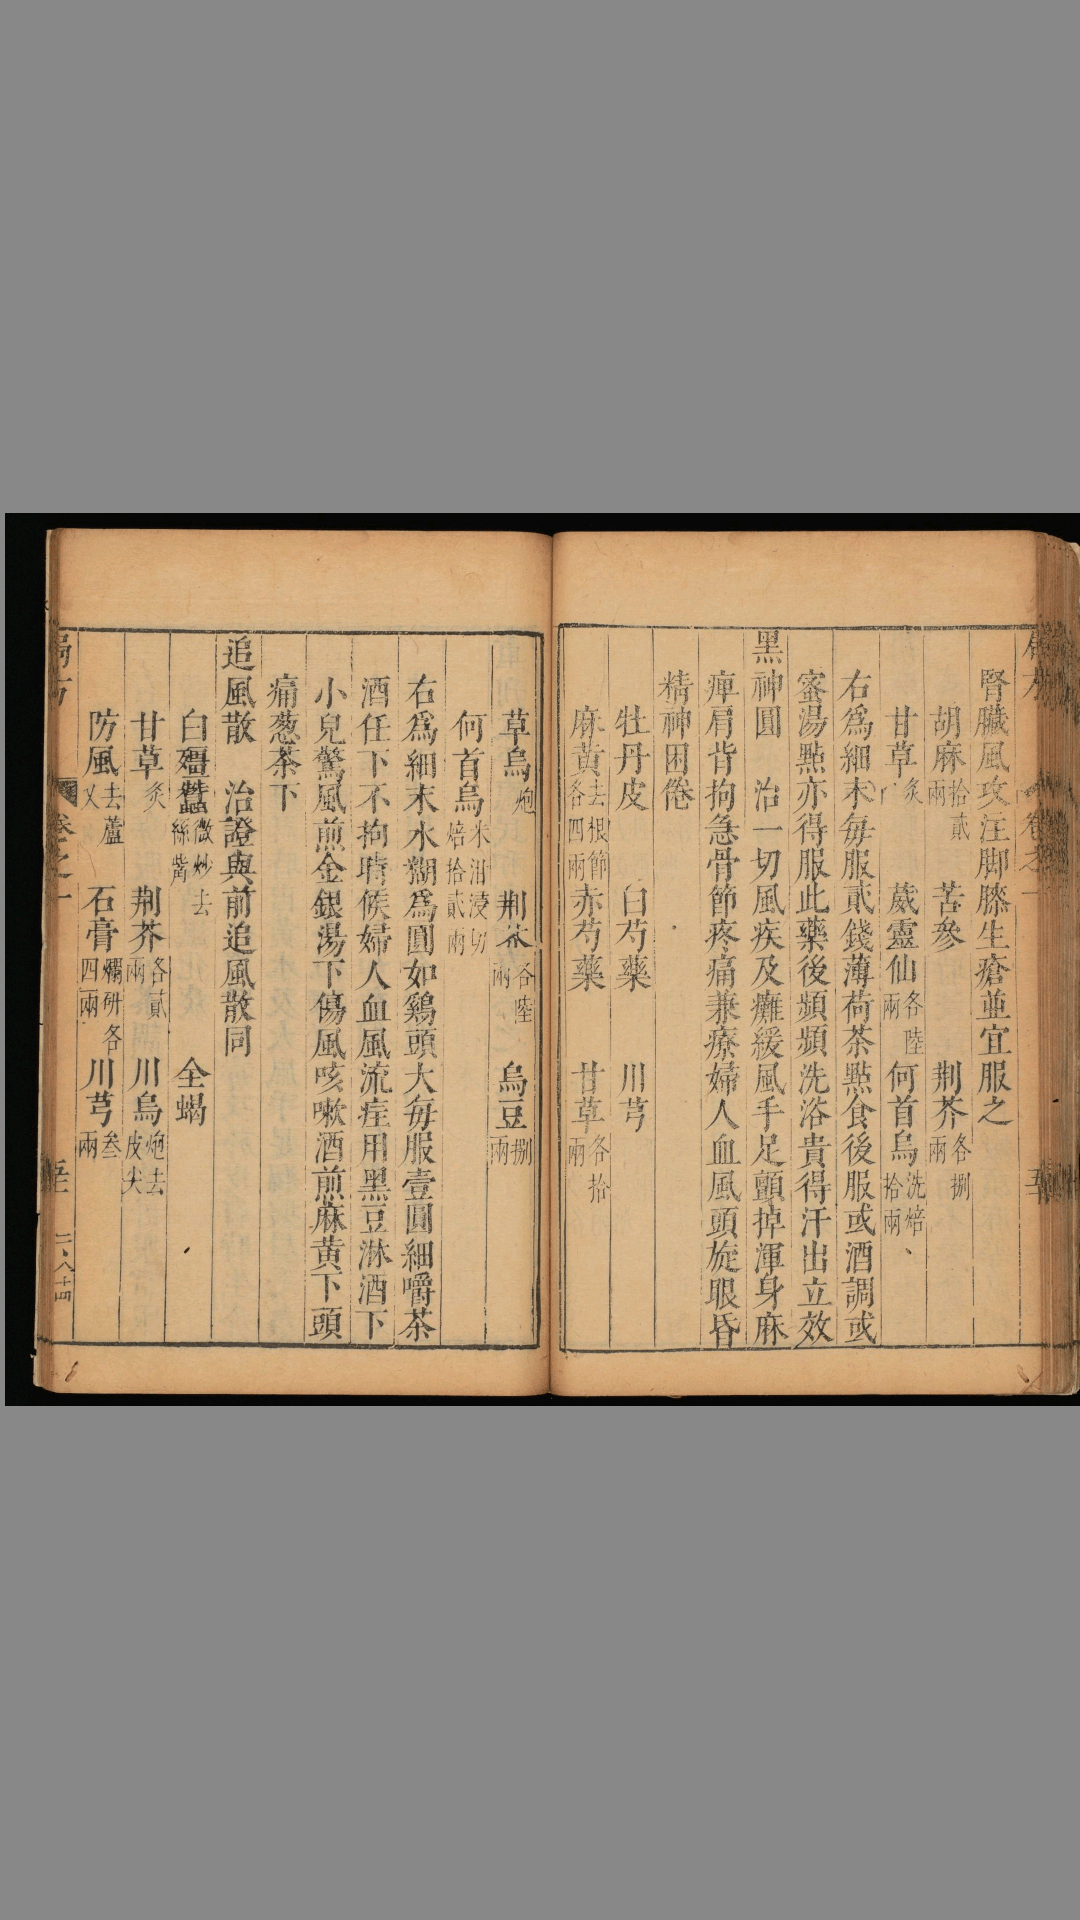 腎臟風攻注脚膝生瘡並宜服之
胡麻拾貳兩 苦參 荆芥各捌兩
甘草炙 葳靈仙各陸兩 何首烏洗焙拾兩
右爲細末每服貳錢薄荷茶點食後服或酒調或
蜜湯點亦得服此藥後頻頻洗浴貴得汗出立效
黑神圓 治一切風疾及癱緩風手足顫掉渾身麻
痺肩背拘急骨節疼痛兼療婦人血風頭旋眼昏
精神困倦
牡丹皮 白芍藥 川芎
麻黃去根節各四兩 赤芍藥 甘草各拾兩
草烏炮 荆芥各陸兩 烏豆捌兩
何首烏米泔浸切焙拾貳兩
右爲細末水糊爲圓如鷄頭大每服壹圓細嚼茶
酒任下不拘時候婦人血風流疰用黑豆淋酒下
小兒驚風煎金銀湯下傷風咳嗽酒煎麻黃下頭
痛葱茶下
追風散 治證與前追風散同
白殭蠶微炒去絲觜 全蝎
甘草炙 荆芥各貳兩 川烏炮去皮尖
防風去蘆义 石膏爛研各四兩 川芎叁兩
局方 卷之一 五 二八十四